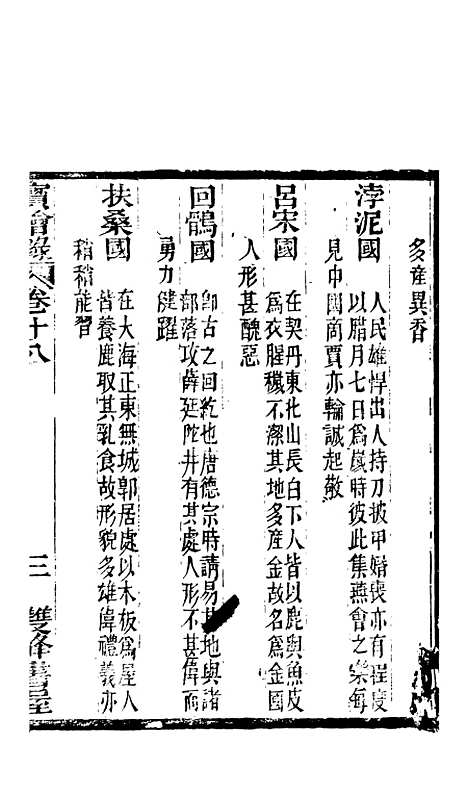 多產異香
浡泥國
人民雄悍出人持刀披甲婚喪亦有程度
以腊月七日為歲時彼此集燕會之樂每
見中國商賈亦輪誠起敬
呂宋國
在契丹東北山長白下人皆以鹿與魚皮
為衣腥穢不潔其地多產金故名為金國
人形甚醜惡
回鶻國
卽古之回紇也唐德宗時請易其地與諸
部落攻薛延陀井有其處人形不甚偉而
勇力健躍
扶桑國
在大海正東無城郭居處以木板為屋人
皆養鹿取其乳食故形貌多雄偉禮義亦
稍稍能習
寶繪錄 卷十八
三
雙峰書屋